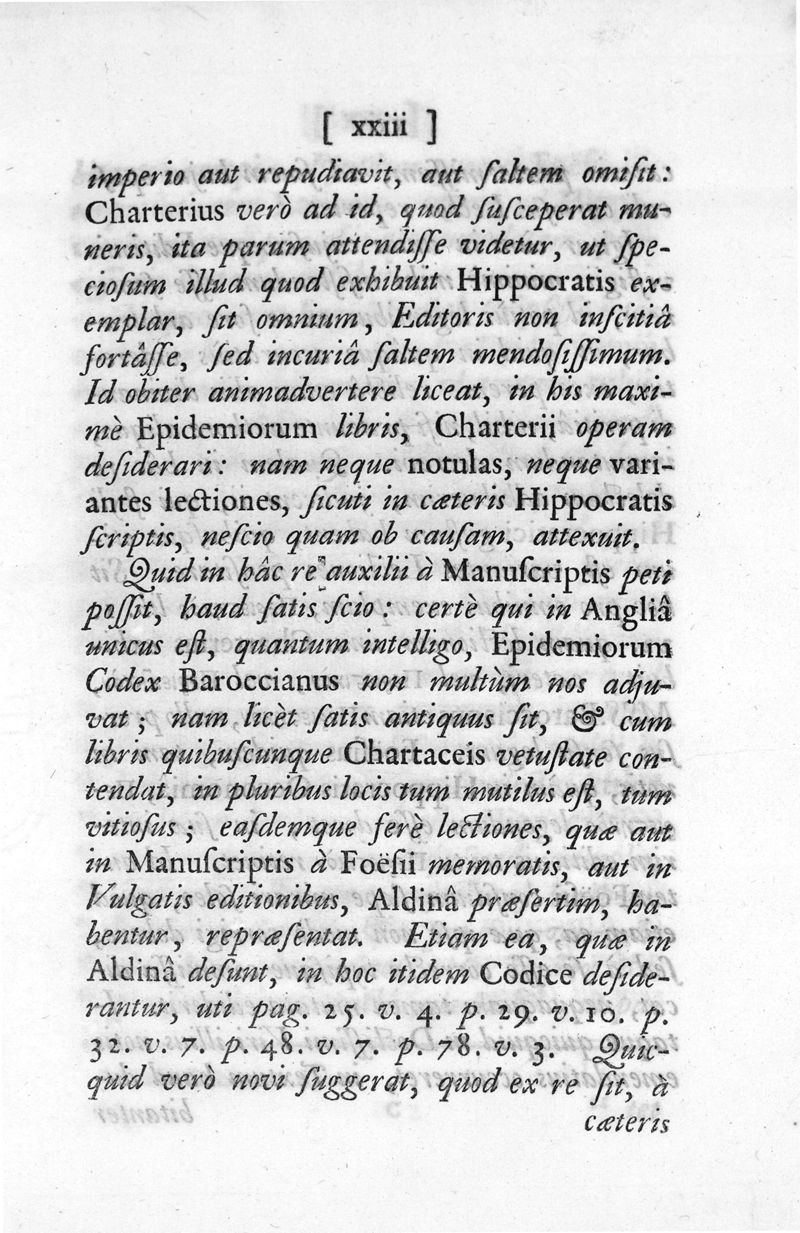 [ xxiii ]
imperio aut repudiavit, aut ſaltem omiſit:
Charterius verò ad id, quod ſuſceperat mu-
neris, ita parum attendiſſe videtur, ut ſpe-
cioſum illud quod exhibuit Hippocratis ex-
emplar, ſit omnium, Editoris non inſcitiâ
fortâſſe, ſed incuriâ ſaltem mendoſiſſimum.
Id obiter animadvertere liceat, in his maxi-
mè Epidemiorum libris, Charterii operam
deſiderari: nam neque notulas, neque vari-
antes lectiones, ſicuti in cæteris Hippocratis
ſcriptis, neſcio quam ob cauſam, attexuit.
Quid in hâc re auxilii à Manuſcriptis peti
poſſit, haud ſatis ſcio: certè qui in Angliâ
unicus eſt, quantum intelligo, Epidemiorum
Codex Baroccianus non multùm nos adju-
vat; nam licèt ſatis antiquus ſit, & cum
libris quibuſcunque Chartaceis vetuſtate con-
tendat, in pluribus locis tum mutilus eſt, tum
vitioſus; eaſdemque ferè lectiones, quæ aut
in Manuſcriptis à Foëſii memoratis, aut in
Vulgatis editionibus, Aldinâ præſertim, ha-
bentur, repræſentat. Etiam ea, quæ in
Aldinâ deſunt, in hoc itidem Codice deſide-
rantur, uti pag. 25. v. 4. p. 29. v. 10. p.
32. v. 7. p. 48. v. 7. p. 78. v. 3. Quic-
quid verò novi ſuggerat, quod ex re ſit, à
cæteris